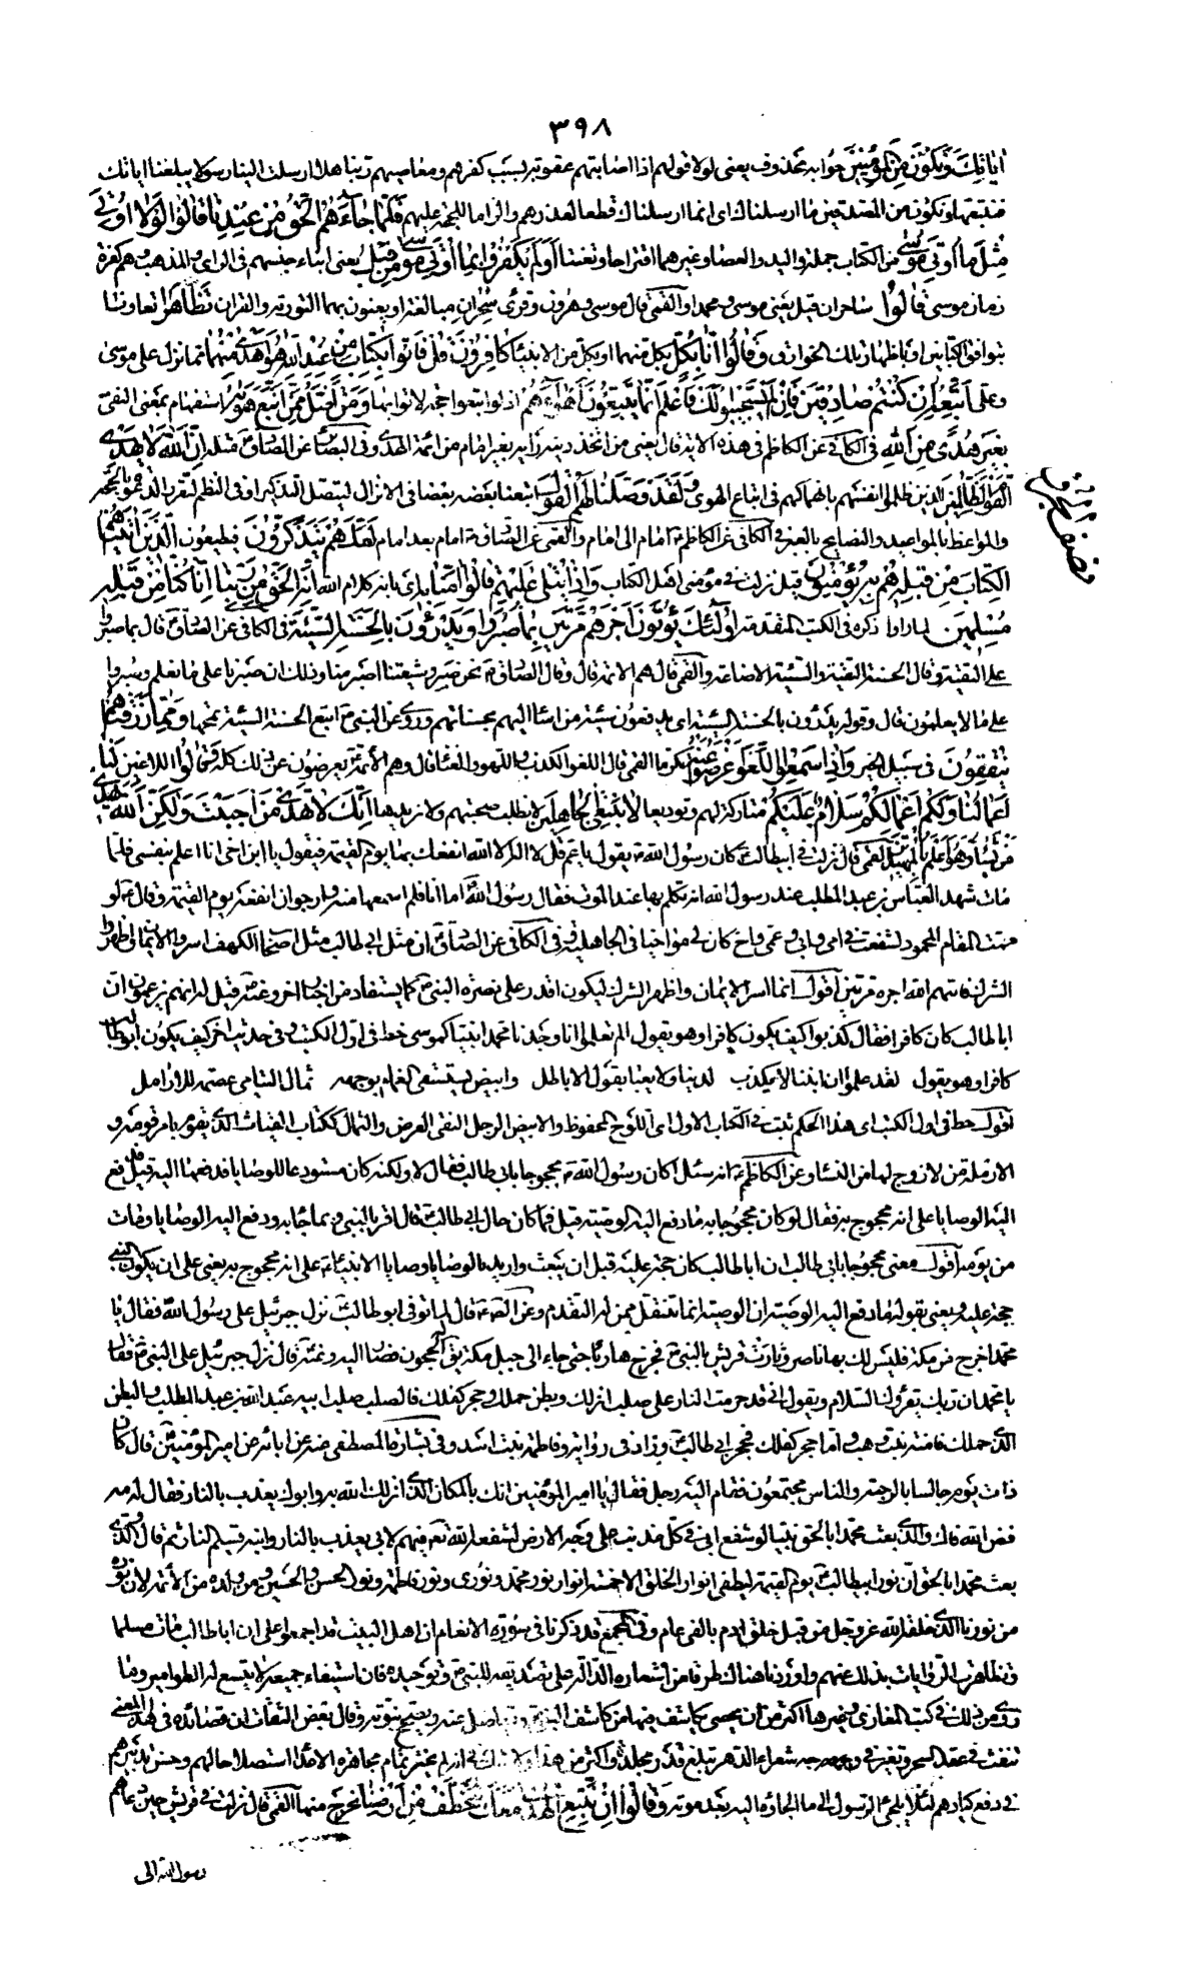 ٣٩٨
اٰيَاتِكَ وَنَكُونَ مِنَ الْمُؤْمِنِينَ جوابه محذوف يعنى لولا قولهم اذا اصابتهم عقوبة بسبب كفرهم ومعاصيهم ربنا هلا ارسلت الينا رسولا يبلغنا اياتك
فنتبعها ونكون من المصدقين ما ارسلناك اى انما ارسلناك قطعا لعذرهم والزاما للحجة عليهم فَلَمَّا جَاءَهُمُ الْحَقُّ مِنْ عِنْدِنَا قَالُوا لَوْلَا اُوتِىَ
مِثْلَ مَا اُوتِىَ مُوسٰى من الكتاب جملة واليد والعصا وغيرهما اقتراحا وتعنتا اَوَلَمْ يَكْفُرُوا بِمَا اُوتِىَ مُوسٰى مِنْ قَبْلُ يعنى ابناء جنسهم فى الراى والمذهب وهم كفرة
زمان موسى قَالُوا ساحران قيل يعنى موسى ومحمدا والقمى قال موسى وهرون وقرئ سِحْرَانِ مبالغة او يعنون بهما التورية والقران تَظَاهَرَا تعاونا
بتوافق الكتابين او باظهار تلك الخوارق وَقَالُوا اِنَّا بِكُلٍّ بكل منهما او بكل من الانبياء كَافِرُونَ قُلْ فَأْتُوا بِكِتَابٍ مِنْ عِنْدِ اللهِ هُوَ اَهْدٰى مِنْهُمَا مما نزل على موسى
وعلى اَتَّبِعْهُ اِنْ كُنْتُمْ صَادِقِينَ فَاِنْ لَمْ يَسْتَجِيبُوا لَكَ فَاعْلَمْ اَنَّمَا يَتَّبِعُونَ اَهْوَاءَهُمْ اذ لو اتبعوا حجة لاتوا بها وَمَنْ اَضَلُّ مِمَّنِ اتَّبَعَ هَوٰيهُ استفهام بمعنى النفى
بِغَيْرِ هُدًى مِنَ اللهِ فى الكافى عن الكاظم فى هذه الاية قال يعنى من اتخذ دينه رايه بغير امام من ائمة الهدى وفى البصائر عن الصادق مثله اِنَّ اللهَ لَا يَهْدِى
الْقَوْمَ الظَّالِمِينَ الذين ظلموا انفسهم بانهماكهم فى اتباع الهوى وَلَقَدْ وَصَّلْنَا لَهُمُ الْقَوْلَ اتبعنا بعضه بعضا فى الانزال ليتصل التذكير او فى النظم لتقرر الدعوة بالحجة
والمواعظ بالمواعيد والنصايح بالعبر فى الكافى عن الكاظم امام الى امام والقمى عن الصادق امام بعد امام لَعَلَّهُمْ يَتَذَكَّرُونَ فيطيعون الَّذِينَ اٰتَيْنَاهُمُ
الْكِتَابَ مِنْ قَبْلِهِ هُمْ بِهِ يُؤْمِنُونَ قيل نزلت فى مؤمنى اهل الكتاب وَاِذَا يُتْلٰى عَلَيْهِمْ قَالُوا اٰمَنَّا بِهِ اى بانه كلام الله اِنَّهُ الْحَقُّ مِنْ رَبِّنَا اِنَّا كُنَّا مِنْ قَبْلِهِ
مُسْلِمِينَ لما راوا ذكره فى الكتب المتقدمة اُولٰئِكَ يُؤْتَوْنَ اَجْرَهُمْ مَرَّتَيْنِ بِمَا صَبَرُوا وَيَدْرَؤُنَ بِالْحَسَنَةِ السَّيِّئَةَ فى الكافى عن الصادق قال بما صبروا
على التقية وقال الحسنة التقية والسيئة الاضاعة والقمى قال هم الائمة قال وقال الصادق نحن صبر وشيعتنا اصبر منا وذلك ان صبرنا على ما نعلم وصبروا
على ما لا يعلمون قال وقوله يدرؤن بالحسنة السيئة اى يدفعون سيئة من اساء اليهم بحسناتهم وروى عن النبى اتبع الحسنة السيئة تمحها وَمِمَّا رَزَقْنَاهُمْ
يُنْفِقُونَ فى سبيل الخير وَاِذَا سَمِعُوا اللَّغْوَ اَعْرَضُوا عَنْهُ تكرما القمى قال اللغو الكذب واللهو والغناء قال وهم الائمة يعرضون عن ذلك كله وَقَالُوا للاغين لَنَا
اَعْمَالُنَا وَلَكُمْ اَعْمَالُكُمْ سَلَامٌ عَلَيْكُمْ متاركة لهم وتوديعا لَا نَبْتَغِى الْجَاهِلِينَ لا نطلب صحبتهم ولا نريدها اِنَّكَ لَا تَهْدِى مَنْ اَحْبَبْتَ وَلٰكِنَّ اللهَ يَهْدِى
مَنْ يَشَاءُ وَهُوَ اَعْلَمُ بِالْمُهْتَدِينَ القمى قال نزلت فى ابيطالب كان رسول الله يقول يا عم قل لا اله الا الله انفعك بها يوم القيمة فيقول يا ابن اخى انا اعلم بنفسى فلما
مات شهد العباس بن عبد المطلب عند رسول الله انه تكلم بها عند الموت فقال رسول الله اما انا فلم اسمعها منه وارجو ان انفعه يوم القيمة وقال لو
قمت المقام المحمود لشفعت فى امى وابى وعمى واخ كان لى مواخيا فى الجاهلية وفى الكافى عن الصادق ان مثل ابى طالب مثل اصحاب الكهف اسروا الايمان واظهروا
الشرك فاتيهم الله اجره مرتين اقول انما اسر الايمان واظهر الشرك ليكون اقدر على نصرة النبى كما يستفاد من اخبار اخر وعنه قيل له انهم يزعمون ان
ابا طالب كان كافرا فقال كذبوا كيف يكون كافرا وهو يقول الم تعلموا انا وجدنا محمدا نبيا كموسى خط فى اول الكتب وفى حديث اخر كيف يكون ابو طالب
كافرا وهو يقول لقد علموا ان ابننا لا مكذب لدينا ولا يعبا بقول الاباطل وابيض يستسقى الغمام بوجهه ثمال اليتامى عصمة للارامل
اقول خط فى اول الكتب اى هذا الحكم ثبت فى الكتاب الاول اى اللوح المحفوظ والابيض الرجل النقى العرض والثمال ككتاب الغياث الذى يقوم بامر قومه و
الارملة من لا زوج لها من النساء وعن الكاظم انه سئل اكان رسول الله محجوجا بابى طالب فقال لا ولكنه كان مستودعا للوصايا فدفعها اليه قيل فدفع
اليه الوصايا على انه محجوج به فقال لو كان محجوجا به ما دفع اليه الوصية قيل فما كان حال ابى طالب قال اقر بالنبى وبما جاء به ودفع اليه الوصايا ومات
من يومه اقول معنى محجوجا بابى طالب ان ابا طالب كان حجة عليه قبل ان يبعث واريد بالوصايا وصايا الانبياء على انه محجوج به يعنى على ان يكون النبى
حجة عليه ويعنى بقوله ما دفع اليه الوصية ان الوصية انما تنتقل ممن له التقدم وعن الصادق قال لما توفى ابو طالب نزل جبرئيل على رسول الله فقال يا
محمد اخرج من مكة فليس لك بها ناصر وثارت قريش بالنبى فخرج هاربا حتى جاء الى جبل بمكة يق له الحجون فصار اليه وعنه قال نزل جبرئيل على النبى فقال
يا محمد ان ربك يقرئك السلام ويقول انى قد حرمت النار على صلب انزلك وبطن حملك وحجر كفلك فالصلب صلب ابيه عبد الله بن عبد المطلب والبطن
الذى حملك فامنة بنت وهب واما حجر كفلك فحجر ابى طالب وزاد فى رواية وفاطمة بنت اسد وفى بشارة المصطفى عن ابائه عن امير المؤمنين قال كان
ذات يوم جالسا بالرحبة والناس مجتمعون فقام اليه رجل فقال يا امير المؤمنين انك بالمكان الذى انزلك الله به وابوك يعذب بالنار فقال له مه
فض الله فاك والذى بعث محمدا بالحق نبيا لو شفع ابى فى كل مذنب على وجه الارض لشفعه الله فيهم لابى يعذب بالنار وابنه قسيم النار ثم قال والذى
بعث محمدا بالحق ان نور ابيطالب يوم القيمة ليطفى انوار الخلق الا خمسة انوار نور محمد ونورى ونور فاطمة ونور الحسن والحسين ومن ولده من الائمة لان نوره
من نورنا الذى خلقه الله عز وجل من قبل خلق ادم بالفى عام وفى المجمع قد ذكرنا فى سورة الانعام ان اهل البيت قد اجمعوا على ان ابا طالب مات مسلما
وتظاهرت الروايات بذلك عنهم واوردنا هناك طرفا من اشعاره الدالة على تصديقه للنبى وتوحيده فان استيفاء جميعه لا يتسع له الطوامير وما
روى من ذلك فى كتب المغازى وغيرها اكثر من ان يحصى يكاشف فيها من كاشف النبى ويناضل عنه ويصحح نبوته وقال بعض الثقات ان قصائده فى هذا المعنى
تنفث فى عقد السحر وتغبر فى وجه شعراء الدهر تبلغ قدر مجلد واكثر من هذا ولا شك فى انه لم يختر تمام مجاهرة الاعداء استصلاحا لهم وحسن تدبيره
فى دفع كيادهم لئلا يلجئ الرسول الى ما الجاؤه اليه بعد موته وَقَالُوا اِنْ نَتَّبِعِ الْهُدٰى مَعَكَ نُتَخَطَّفْ مِنْ اَرْضِنَا نخرج منها القمى قال نزلت فى قريش حين دعاهم
رسول الله الى
نصف الجزء